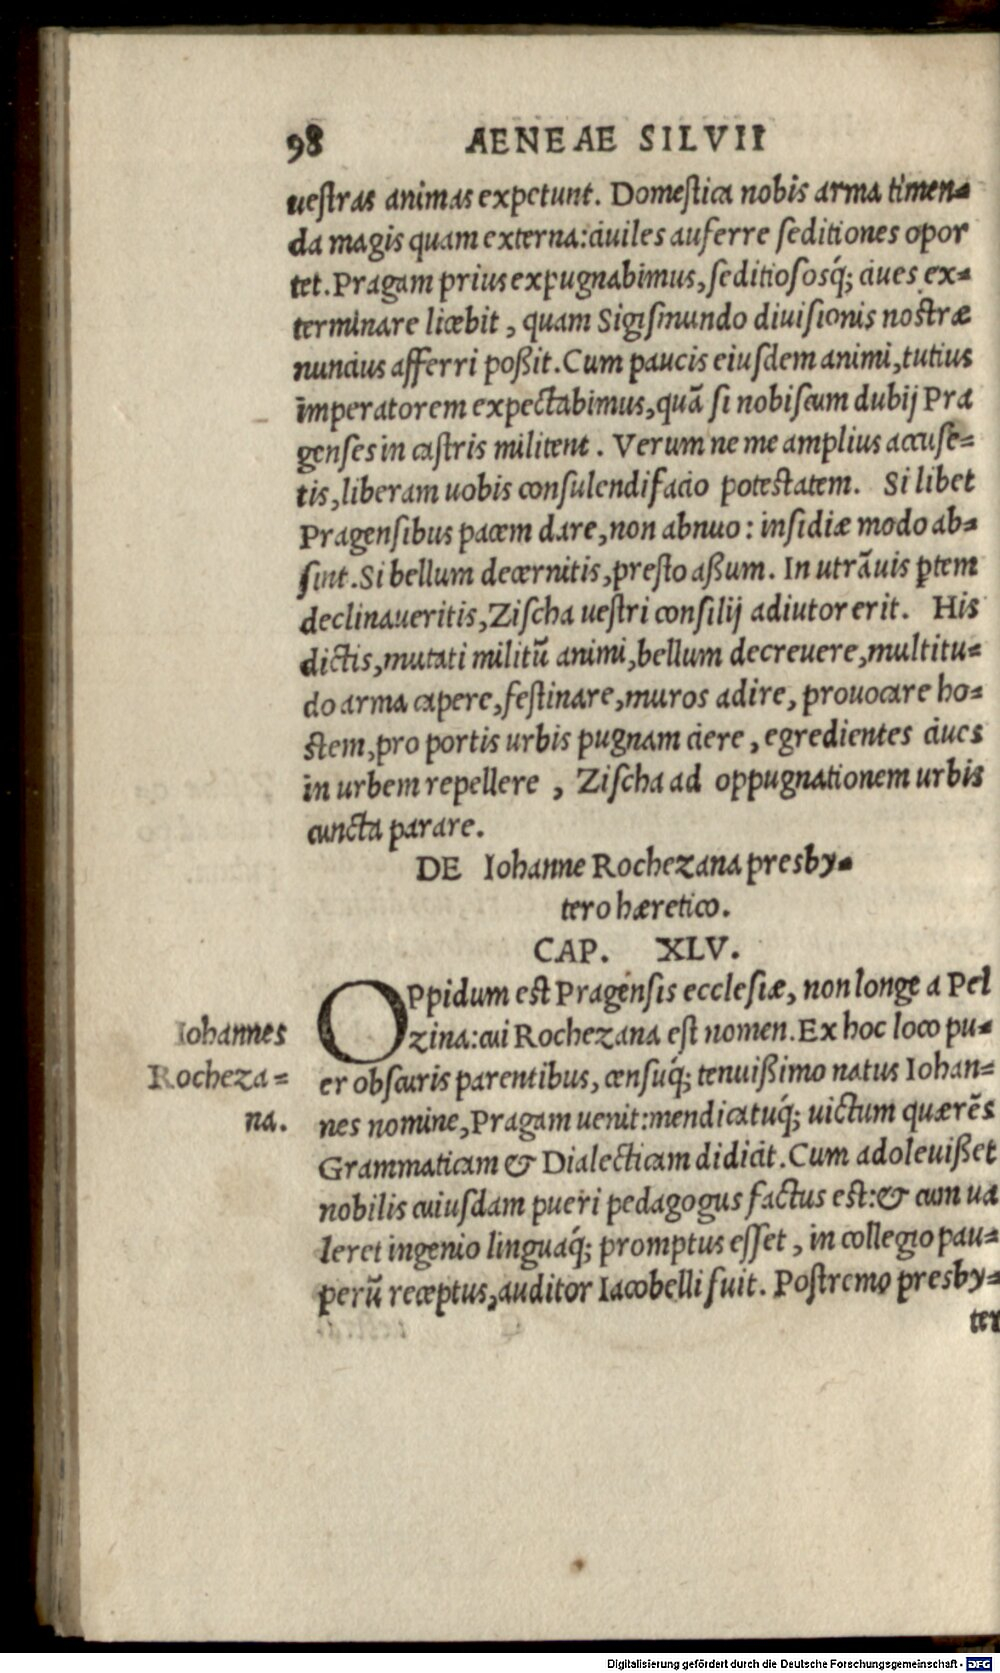 98 AENEAE SILVII
ueſtras animas expetunt. Domeſtica nobis arma timen-
da magis quam externa: ciuiles auferre ſeditiones opor
tet. Pragam prius expugnabimus, ſeditioſosq́; ciues ex-
terminare licebit, quam Sigiſmundo diuiſionis noſtræ
nuncius afferri poßit. Cum paucis eiuſdem animi, tutius
imperatorem expectabimus, quã ſi nobiſcum dubij Pra
genſes in caſtris militent. Verum ne me amplius accuſe-
tis, liberam uobis conſulendi facio poteſtatem. Si libet
Pragenſibus pacem dare, non abnuo: inſidiæ modo ab-
ſint. Si bellum decernitis, preſto aßum. In utrãuis ꝑtem
declinaueritis, Ziſcha ueſtri conſilij adiutor erit. His
dictis, mutati militũ animi, bellum decreuere, multitu-
do arma capere, feſtinare, muros adire, prouocare ho-
ſtem, pro portis urbis pugnam ciere, egredientes ciues
in urbem repellere, Ziſcha ad oppugnationem urbis
cuncta parare.
DE Iohanne Rochezana presby-
tero hæretico.
CAP. XLV.
OPpidum eſt Pragenſis eccleſiæ, non longe a Pel
zina: cui Rochezana eſt nomen. Ex hoc loco pu-
er obſcuris parentibus, cenſuq́; tenuißimo natus Iohan-
nes nomine, Pragam uenit: mendicatuq́; uictum quærẽs
Grammaticam & Dialecticam didicit. Cum adoleuißet
nobilis cuiuſdam pueri pedagogus factus eſt: & cum ua
leret ingenio linguaq́; promptus eſſet, in collegio pau-
perũ receptus, auditor Iacobelli fuit. Poſtremo presby-
ter
Iohannes
Rocheza-
na.
Digitalisierung gefördert durch die Deutsche Forschungsgemeinschaft - DFG